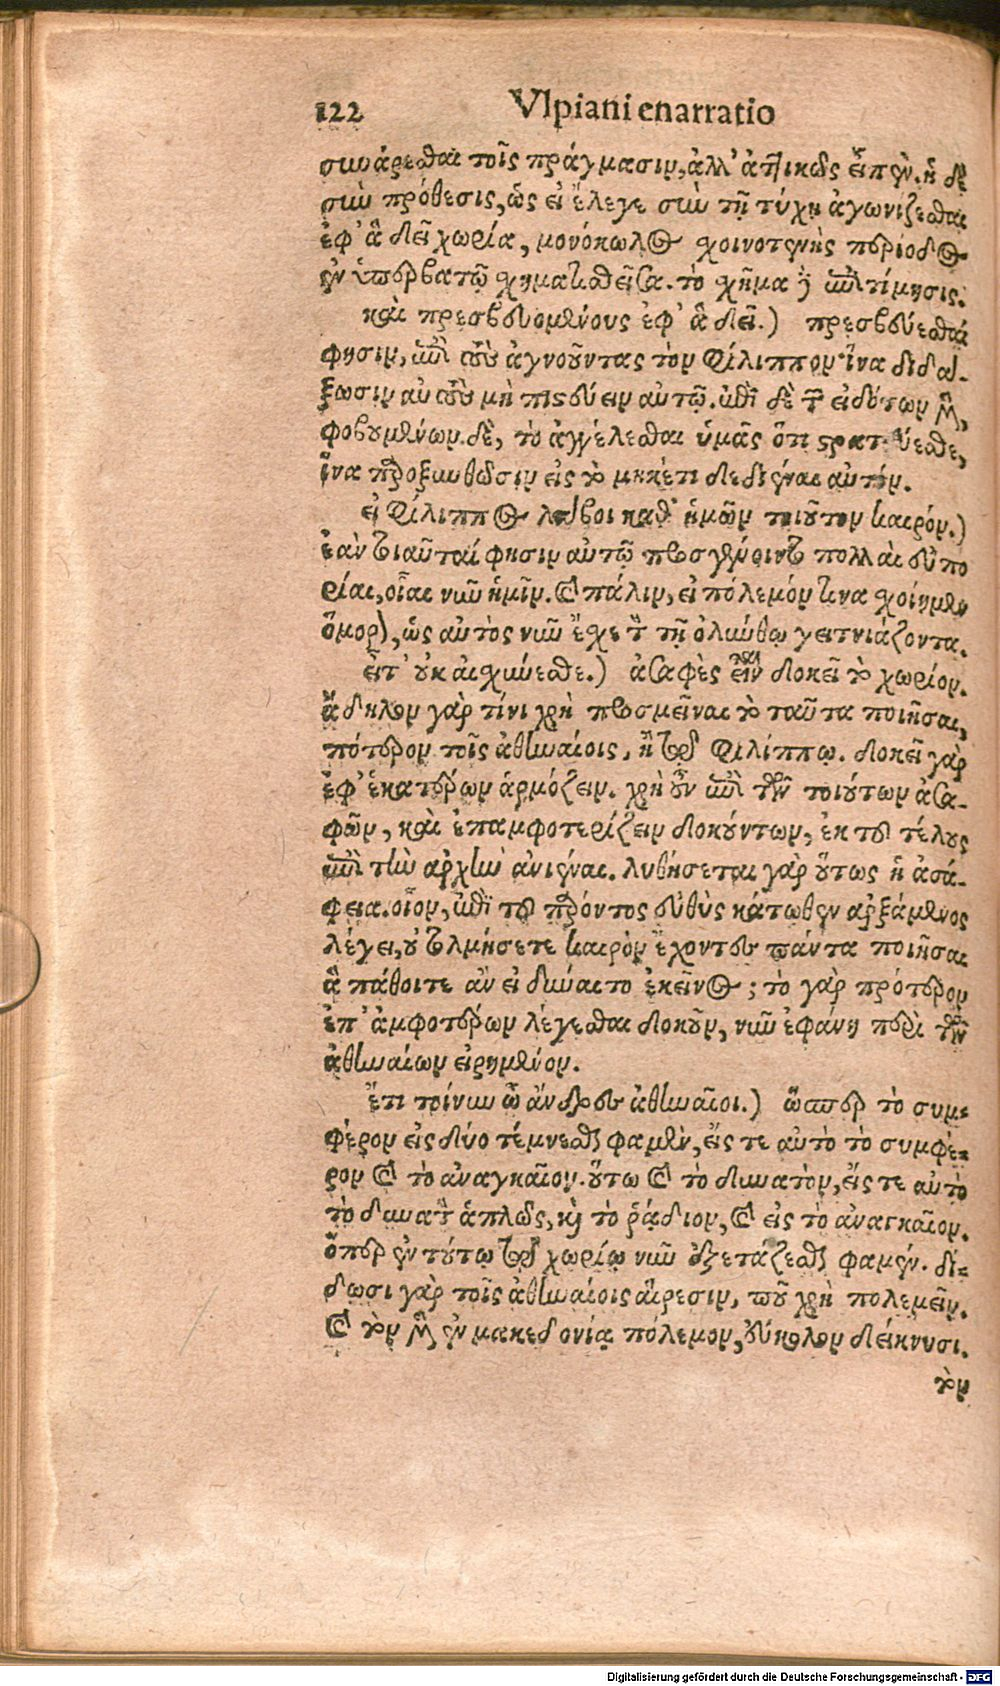 122 Vlpiani enarratio
συνάρεσθαι τοῖς πράγμασιν, ἀλλ' ἀττικῶς εἶπεν. ἡ δὲ
σὺν πρόθεσις, ὡς εἰ ἔλεγε σὺν τῇ τύχῃ ἀγωνίζεσθαι
ἐφ' ἃ δεῖ χωρία, μονόκωλος χοινοτενὴς περίοδος
ἐν ὑπερβατῷ χηματισθεῖσα. τὸ χῆμα ἢ ἐπιτίμησις.
καὶ πρεσβευομένους ἐφ' ἃ δεῖ.) πρεσβεύεσθαί
φησιν, ἐπὶ τοὺς ἀγνοοῦντας τὸν Φίλιππον ἵνα διδά-
ξωσιν αὐτοὺς μὴ πιστεύειν αὐτῷ. ἐπὶ δὲ τῶν εἰδότων μὲν,
φοβουμένων δὲ, τὸ ἀγγέλεσθαι ὑμᾶς ὅτι στρατεύεσθε,
ἵνα παροξυνθῶσιν εἰς τὸ μηκέτι δεδιέναι αὐτόν.
εἰ Φίλιππος λάβοι καθ' ἡμῶν τοιοῦτον καιρόν.)
ἐὰν τοιαῦταί φησιν αὐτῷ προσγένοιντο πολλαὶ εὐπο
ρίαι, οἷαι νῦν ἡμῖν. καὶ πάλιν, εἰ πόλεμόν τινα χοίημεν
ὅμορον, ὡς αὐτὸς νῦν ἔχει τὸν τῇ ὀλύνθῳ γειτνιάζοντα.
εἶτ' οὐκ αἰσχύνεσθε.) ἀσαφὲς εἶναι δοκεῖ τὸ χωρίον.
ἄδηλον γὰρ τίνι χρὴ προσμεῖναι τὸ ταῦτα ποιῆσαι,
πότερον τοῖς ἀθηναίοις, ἢ τῷ Φιλίππῳ. δοκεῖ γὰρ
ἐφ' ἑκατέρων ἁρμόζειν. χρὴ οὖν ἐπὶ τῶν τοιούτων ἀσα-
φῶν, καὶ ἐπαμφοτερίζειν δοκούντων, ἐκ τοῦ τέλους
ἐπὶ τὴν ἀρχὴν ἀνιέναι. λυθήσεται γὰρ οὕτως ἡ ἀσά-
φεια. οἷον, ἐπὶ τοῦ παρόντος εὐθὺς κάτωθεν ἀρξάμενος
λέγει, οὐ τολμήσετε καιρὸν ἔχοντες πάντα ποιῆσαι
ἃ πάθοιτε ἂν εἰ δύναιτο ἐκεῖνος; τὸ γὰρ πρότερον
ἐπ' ἀμφοτέρων λέγεσθαι δοκοῦν, νῦν ἐφάνη περὶ τῶν
ἀθηναίων εἰρημένον.
ἔτι τοίνυν ὦ ἄνδρες ἀθηναῖοι.) ὥσπερ τὸ συμ-
φέρον εἰς δύο τέμνεσθαι φαμὲν, εἴς τε αὐτὸ τὸ συμφέ-
ρον καὶ τὸ ἀναγκαῖον. οὕτω καὶ τὸ δυνατὸν, εἴς τε αὐτὸ
τὸ δυνατὸν ἁπλῶς, καὶ τὸ ῥᾴδιον, καὶ εἰς τὸ ἀναγκαῖον.
ὅπερ ἐν τούτῳ τῷ χωρίῳ νῦν ἐξετάζεσθαι φαμέν. δί-
δωσι γὰρ τοῖς ἀθηναίοις αἵρεσιν, ποῦ χρὴ πολεμεῖν.
καὶ τὸν μὲν ἐν μακεδονίᾳ πόλεμον, εὔκολον δείκνυσι.
τὸν
Digitalisierung gefördert durch die Deutsche Forschungsgemeinschaft - DFG